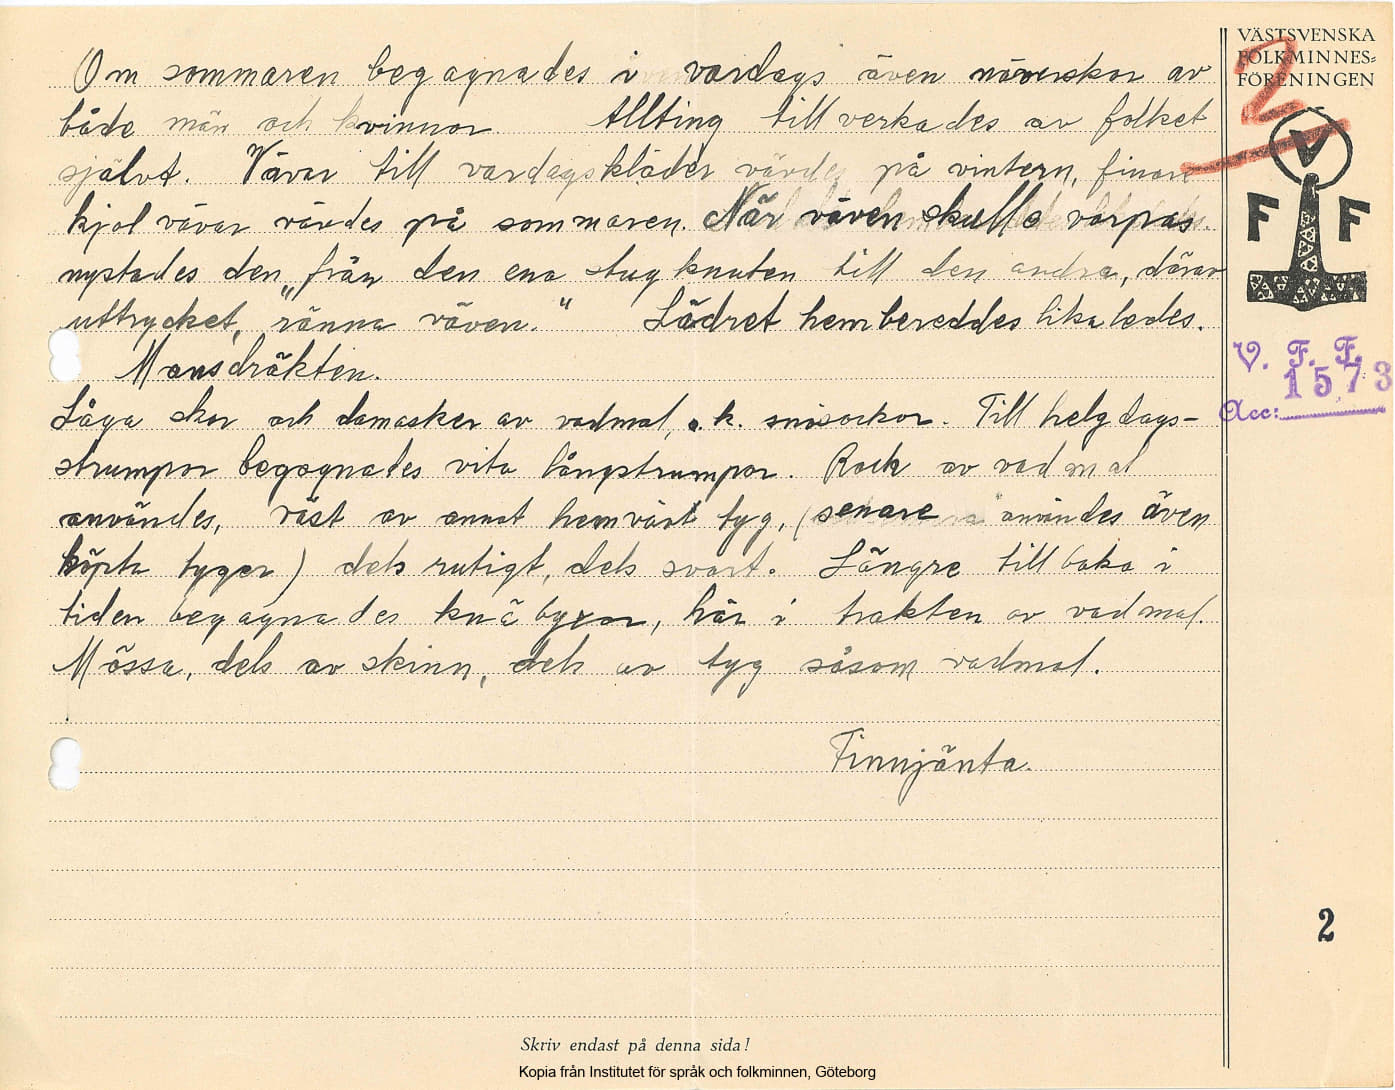 Om sommaren begagnades i vardags även näverskor av
både män och kvinnor Allting tillverkades av folket
självt. Vävar till vardagskläder vävdes på vintern, finare
kjolvävar vävdes på sommaren. När väven skulle varpas
nystades den „från den ena stugknuten till den andra, därav
uttrycket, "ränna väven." Lädret hembereddes likaledes.
Mansdräkten.
Låga skor och damasker av vadmal, s.k. snösockor. Till helgdags-
strumpor begagnades vita långstrumpor. Rock av vadmal
användes, väst av annat hemvävt tyg, (senare användes även
köpta tyger) dels rutigt, dels svart. Längre tillbaka i
tiden begagnades knäbyxor, här i trakten av vadmal.
Mössa, dels av skinn, dels av tyg såsom vadmal.
Finnjänta.
VÄSTSVENSKA
FOLKMINNES-
FÖRENINGEN
2
V
F F
V. F. F.
1573
Acc:
2
Skriv endast på denna sida!
Kopia från Institutet för språk och folkminnen, Göteborg